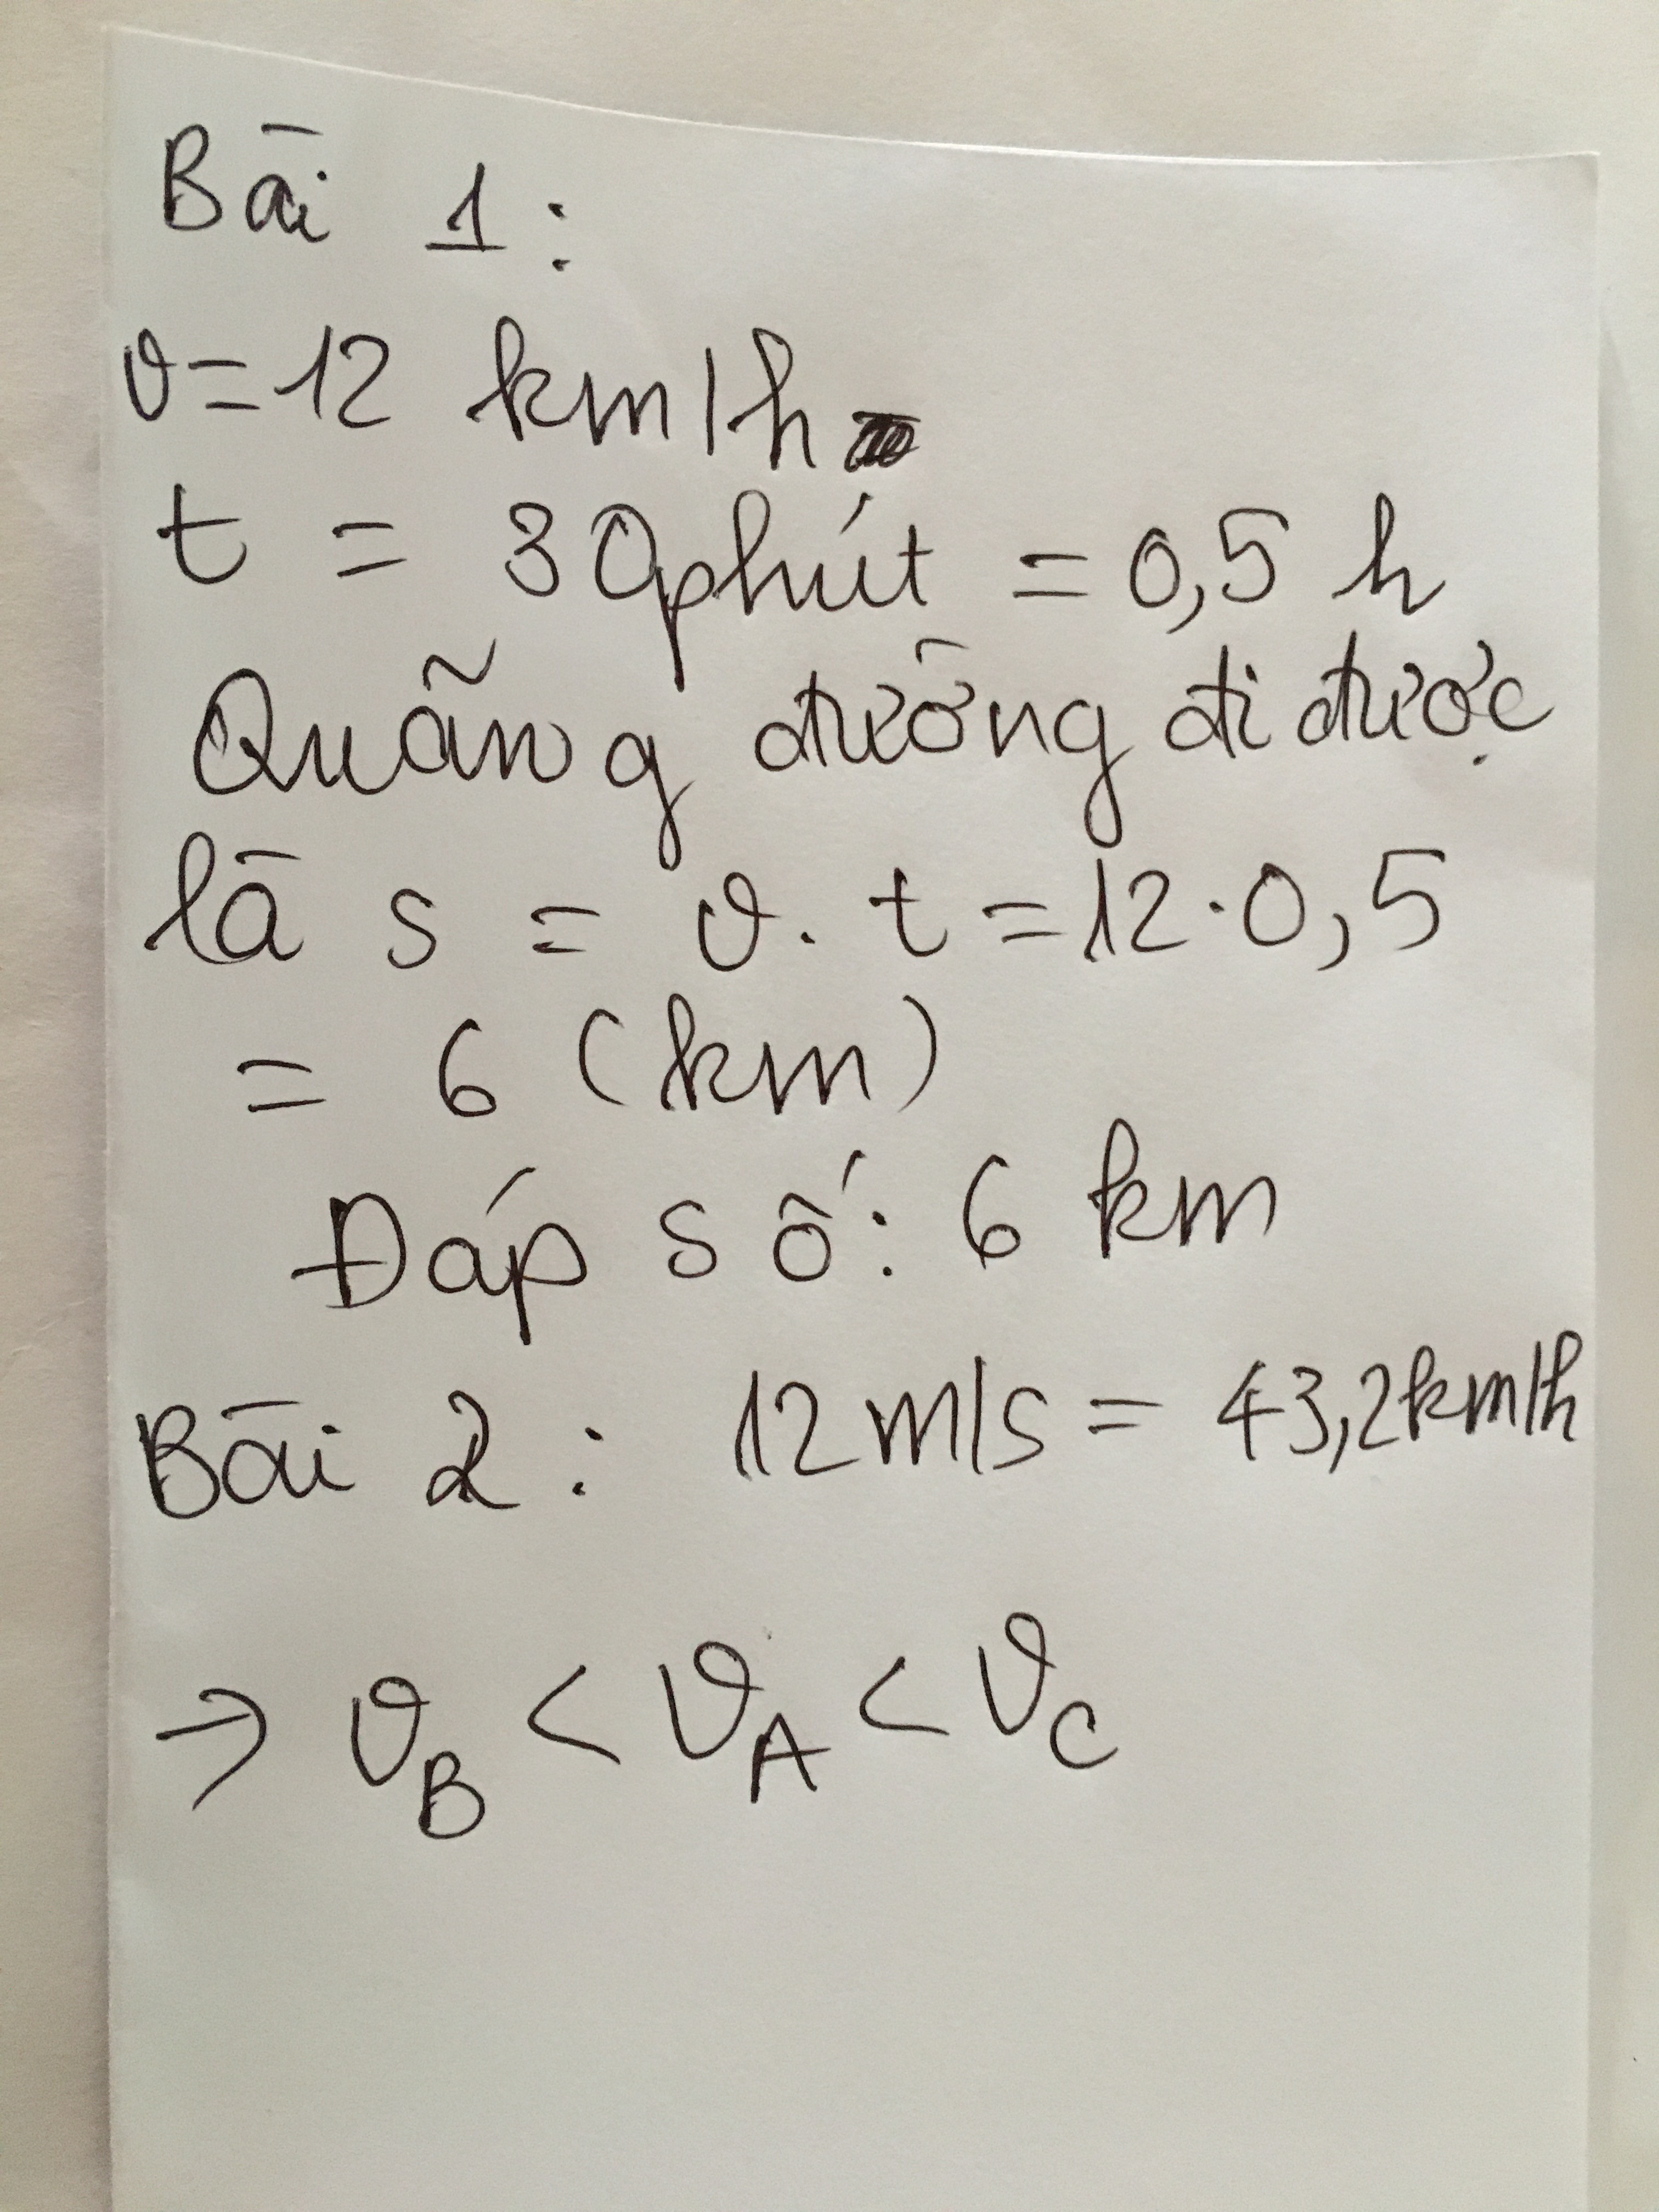 Bài 1:
v = 12 km/h
t = 30phút = 0,5 h
Quãng đường đi được
là s = v. t = 12.0,5
= 6 (km)
Đáp số: 6 km
Bài 2: 12m/s = 43,2km/h
→ v_B < v_A < v_C